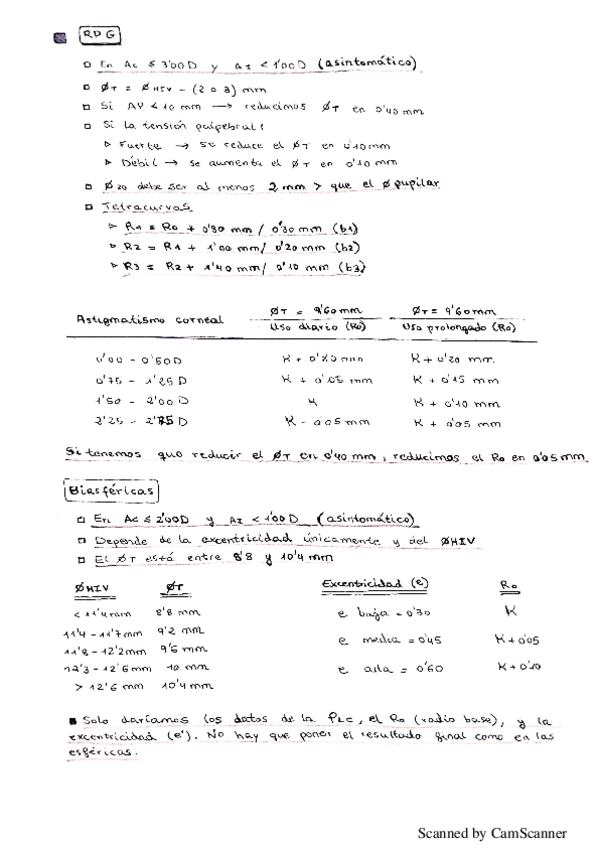 RPG
En Ac ≤ 3'00D y AI < 1'00D (asintomático)
ØT = ØHIV - (2 o 3) mm
Si AP < 10 mm → reducimos ØT en 0'40 mm
Si la tensión palpebral:
Fuerte → se reduce el ØT en 0'10mm
Débil → se aumenta el ØT en 0'10 mm
Øzo debe ser al menos 2mm > que el Ø pupilar
Tetracurvos
R1 = R0 + 0'80 mm / 0'30 mm (b1)
R2 = R1 + 1'00 mm / 0'20 mm (b2)
R3 = R2 + 1'40 mm / 0'10 mm (b3)
Astigmatismo corneal ØT = 9'60mm ØT = 9'60mm
Uso diario (R0) Uso prolongado (R0)
0'00 - 0'50D K + 0'10 mm K + 0'20 mm
0'75 - 1'25D K + 0'05 mm K + 0'15 mm
1'50 - 2'00D K K + 0'10 mm
2'25 - 2'75D K - 0'05 mm K + 0'05 mm
Si tenemos que reducir el ØT en 0'40 mm, reducimos el R0 en 0'05 mm.
Biasféricas
En Ac ≤ 2'00D y AI < 1'00D (asintomático)
Depende de la excentricidad únicamente y del ØHIV
El ØT está entre 8'8 y 10'4 mm
ØHIV ØT Excentricidad (e) R0
< 11'4 mm 8'8 mm e baja = 0'30 K
11'4 - 11'7 mm 9'2 mm e media = 0'45 K + 0'05
11'8 - 12'2 mm 9'6 mm
12'3 - 12'6 mm 10 mm e alta = 0'60 K + 0'10
> 12'6 mm 10'4 mm
Solo daríamos los datos de la PLC, el R0 (radio base), y la
excentricidad (e'). No hay que poner el resultado final como en las
esféricas.
Scanned by CamScanner